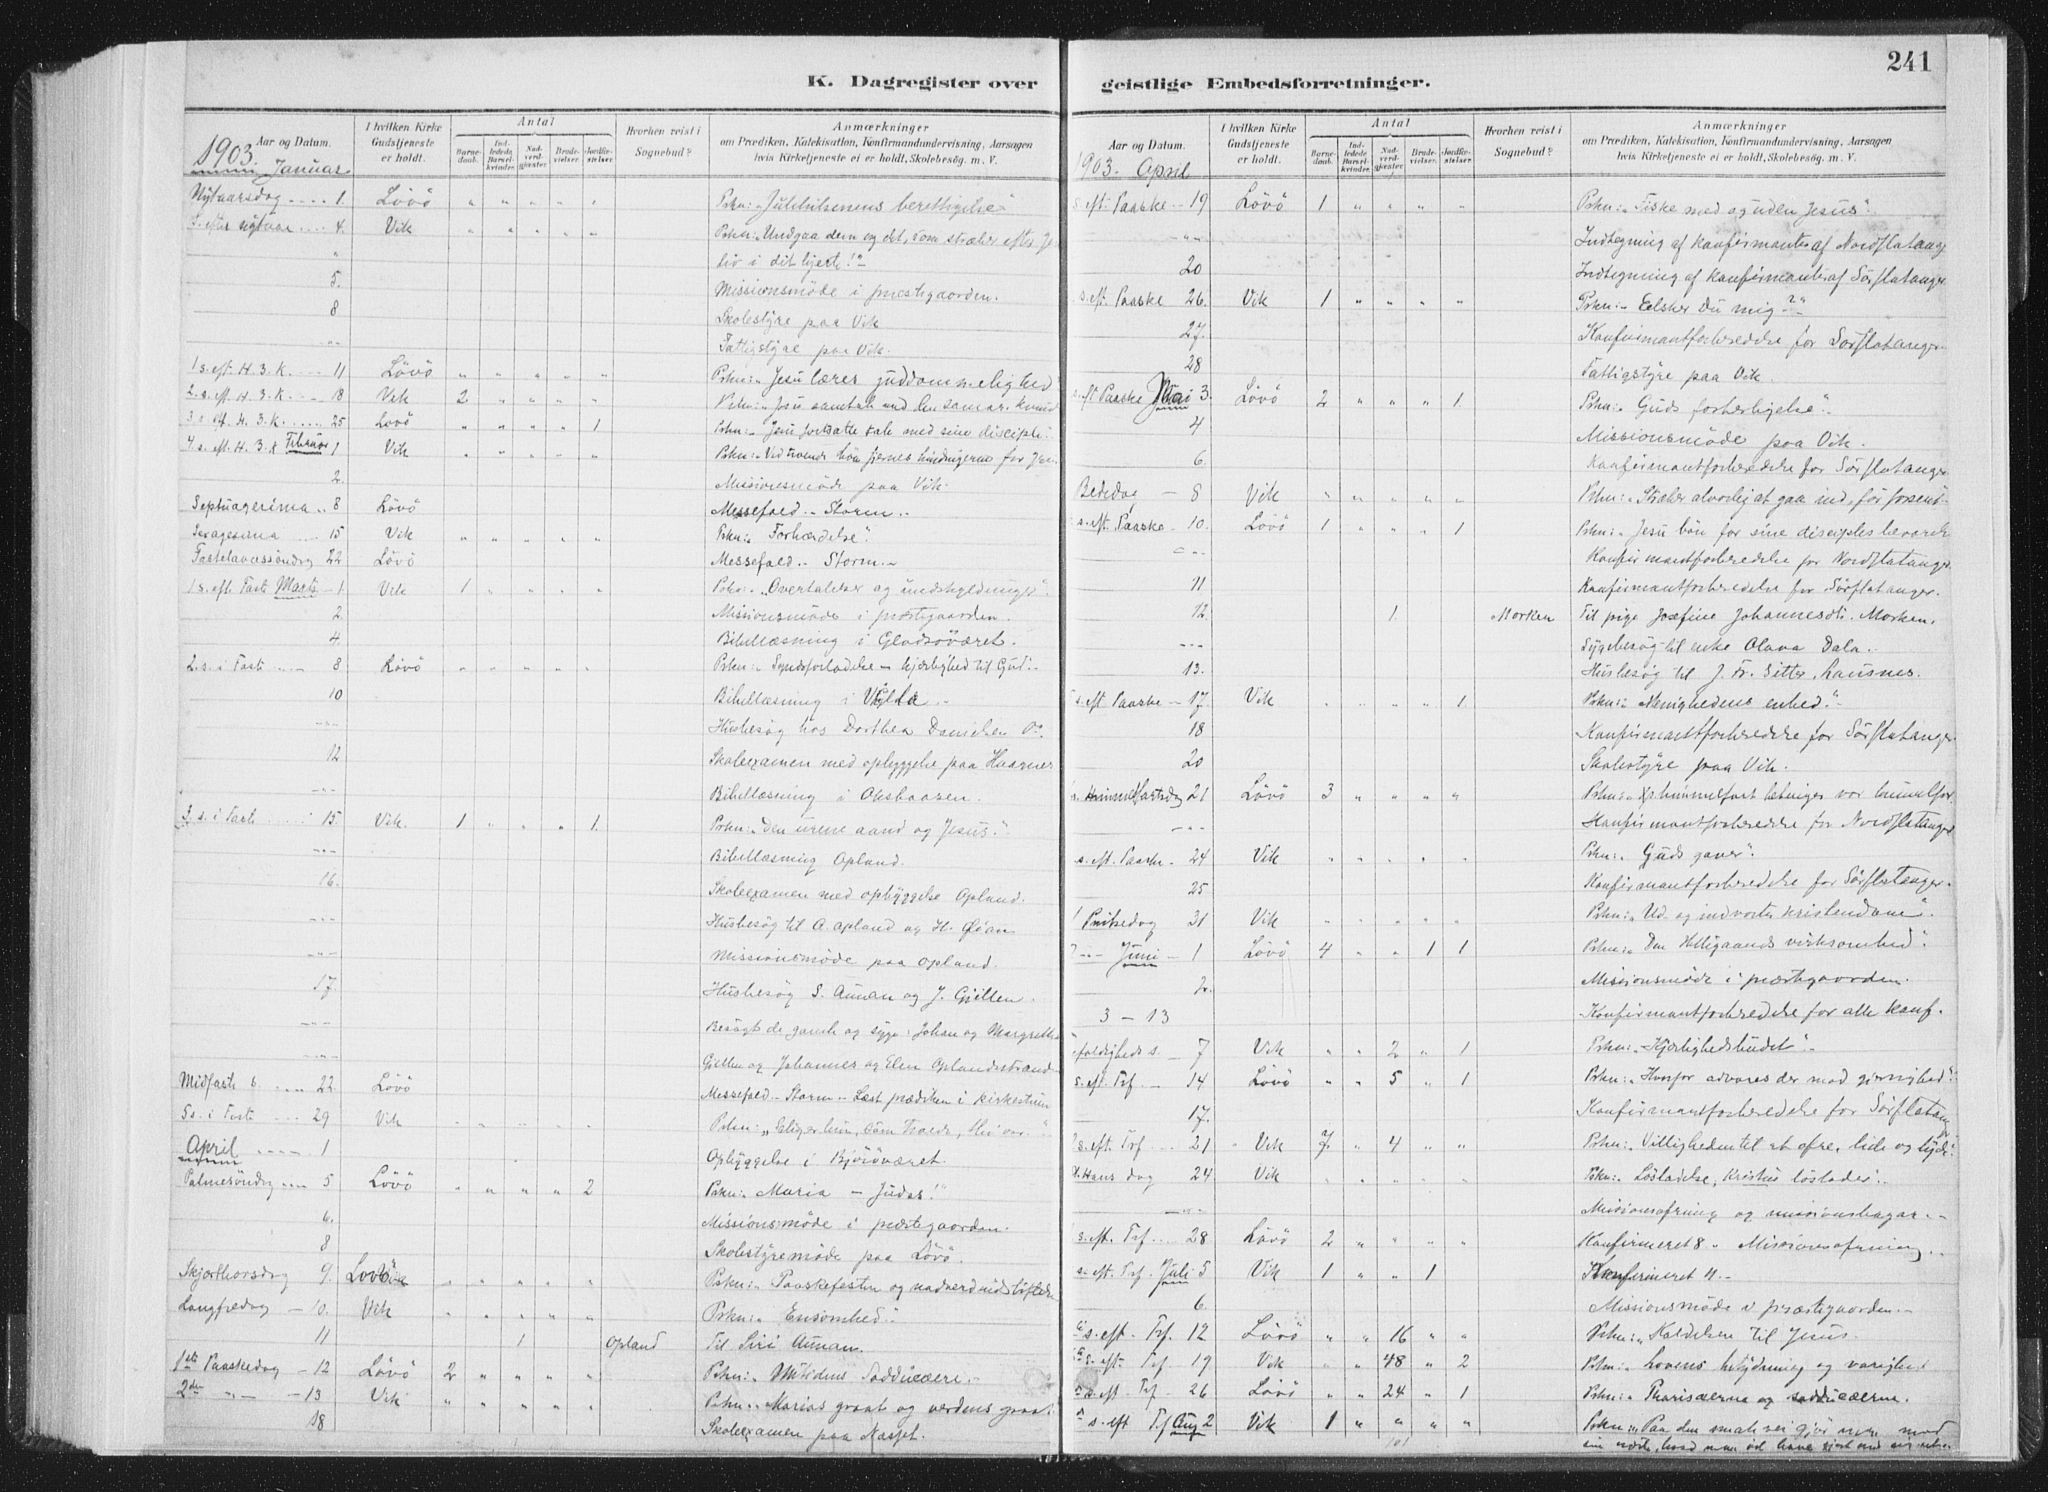 241
K. Dagregister over geistlige Embedsforretninger.
Aar og Datum. I hvilken Kirke Gudstjeneste er holdt. Antal Barnedaab. Indledede Barselkvinder. Nadverdgjæster. Brudevielser. Jordfæstelser. Hvorhen reist i Sognebud? Anmærkninger om Prædiken, Katekisation, Konfirmandundervisning, Aarsagen hvis Kirketjeneste ei er holdt, Skolebesøg. m. V.
1903. Januar
Nytaarsdag .... 1. Lövö " " " " " Prkn:
S. efter nytaar .... 4. Vik " " " " " Prkn: "Undgaa dem og det, som stræber efter
liv i dit hjerte!"
5. Missionsmöde i præstegaarden.
8 Skolestyre paa Vik
"" Fattigstyre paa Vik.
1 s. eft. H. 3. K. .... 11 Lövö " " " " " Prkn: "Jesu læres guddommelighed"
2. s. eft. H. 3. K. .... 18 Vik 2 " " " " Prkn: "Jesu samtale med den samar. kvinde
3 s. eft. H. 3. K. .... 25 Lövö " " " " 1 Prkn: "Jesu fortsatte tale med sine disciple."
4. s. eft. H. 3. K Februar 1 Vik " " " " " Prkn:
2. Missionsmöde paa Vik.
Septuagesima .. 8 Lövö Messefald - Storm.
Sexagesima .... 15 Vik " " " " " Prkn: "Forhærdelse".
Fastelavnssöndag 22 Lövö Messefald - Storm.
1 s. eft. Fast. Marts - 1 Vik 1 " " " " Prkn: "Overtalelser og undskyldninger".
2. Missionsmöde i præstegaarden.
4. Bibellæsning i Gladsöværet.
2. s. i Fast. .... 8 Lövö " " " " " Prkn: "Syndsforladelse - kjærlighed til Gud".
10 Bibellæsning i
"" Husbesøg hos Dorthea Danielsen
12 Skoleexamen med opbyggelse paa Haarnes
"" Bibellæsning i Oksbaasen.
3. s. i Fast. .... 15. Vik. 1 " " " 1. Prkn: "Den urene aand og Jesus."
"" Bibellæsning Opland.
16. Skoleexamen med opbyggelse Opland.
"" Husbesøg til A. Opland og H. Øian
"" Missionsmöde paa Opland.
17. Husbesøg S. Auman og J. Gjillen.
"" Besögt de gamle og syge: Johan og Margrethe
"" Gjillen og Johannes og Elen Oplandsstrand
Midfaste s. .... 22. Lövö Messefald - Storm - Læst prædiken i kirkestuen
5 s. i Fast. .... 29 Vik " " " " " Prkn:
April .... 1 Opbyggelse i Björöværet.
Palmesöndag .... 5 Lövö " " " " 2 Prkn: "Maria - Judas!"
6. Missionsmöde i præstegaarden.
8 Skolestyremöde paa Lövö.
Skjærthorsdag 9. Lövö " " " " " Prkn: "Paaskefesten og nadverd
Langfredag - 10. Vik " " " " " Prkn: "Ensomhed."
11 1 Opland Til Siri Auman.
1ste Paaskedag - 12 Lövö 2 " " " " Prkn: "Vor tidens Sadducæere.
2den " - 13 Vik " " " " " Prkn: "Marias graat og verdens graat."
18 Skoleexamen paa Næsset.
Aar og Datum. I hvilken Kirke Gudstjeneste er holdt. Antal Barnedaab. Indledede Barselkvinder. Nadverdgjæster. Brudevielser. Jordfæstelser. Hvorhen reist i Sognebud? Anmærkninger om Prædiken, Katekisation, Konfirmandundervisning, Aarsagen hvis Kirketjeneste ei er holdt, Skolebesøg. m. V.
1903. April
s. eft. Paaske - 19 Lövö 1 " " " " Prkn: "Fiske med og uden Jesus".
"" Indtegning af Konfirmanter af Nordflatanger
20 Indtegning af Konfirmanter af Sörflatanger
s. eft. Paaske 26. Vik 1 " " " " Prkn: "Elsker Du mig?"
27. Konfirmantforberedelse for Sörflatanger.
28 Fattigstyre paa Vik.
s. eft Paaske Mai 3. Lövö 2 " " " 1. Prkn: "Guds forherligelse".
4 Missionsmöde paa Vik.
6. Konfirmantforberedelse for Sörflatanger
Bededag - 8 Vik " " " " " Prkn: "Stræber alvorlig at gaa ind, för forsent
s. eft. Paaske - 10. Lövö 1 " " " 1 Prkn: "Jesu bön for sine disciples
"" Konfirmantforberedelse for Nordflatanger.
11 Konfirmantforberedelse for Sörflatanger.
12. 1. Morken Til pige Josefine Johannesdt. Morken.
"" Sygebesøg til enke Olava Dala.
13. Husbesøg til J. Fr. Sitter, Lausnes.
s. eft Paaske - 17. Vik " " " " 1 Prkn: "Menighedens enhed".
18 Konfirmantforberedelse for Sörflatanger
20 Skolestyre paa Vik.
Himmelfartsdag 21 Lövö 3 " " " " Prkn: "Kr. himmelfart betinger vor himmelfart
"" Konfirmantforberedelse for Nordflatanger
s. eft. Paaske - 24 Vik " " " " " Prkn: "Guds gaver".
25 Konfirmantforberedelse for Sörflatanger.
1 Pintsedag 31 Vik " " " " " Prkn: "Ud- og indvortes kristendom".
2 "" Juni - 1 Lövö 4 " " 1 1 Prkn: "Den Helligaands virksomhed".
2. Missionsmöde i præstegaarden.
3 - 13 Konfirmantforberedelse for alle konf.
foldigheds s. - 7 Vik " " 2 " 1 Prkn: "Kjærlighedsbudet".
s. eft. Trf. - 14 Lövö " " 5 " 1 Prkn: "Hvorfor advares der mod gjerrighed".
17. Konfirmantforberedelse for Sörflatang
s. eft. Trf. ... 21 Vik 7. " 4 " " Prkn: "Villigheden til at ofre, lide og lyde".
St. Hans dag 24 Vik " " " " " Prkn: "Löslodelse, Kristus löslader".
"" Missionsofring og missionsbøgar.
s. eft. Trf. .... 28 Lövö 2 " " " " Konfirmeret 8. Missionsofring
s. eft. Trf. Juli 5 Vik 1 " " 1 Konfirmeret 11.
6. Missionsmöde i præstegaarden.
s. eft. Trf. 12 Lövö " " 16 " " Prkn: "Kaldelsen til Jesus.
s. eft. Trf - 19 Vik " " 48 " 2 Prkn: "Lovens betydning og varighed
s. eft. Trf - 26 Lövö " " 24 " 1 Prkn: "Farisæerne og sadducæerne.
s. eft Trf Aug 2 Vik 1 " " " " Prkn: "Paa den smale vei gjör man mod
101 sin næste, hvad man vil have gjort mod sig